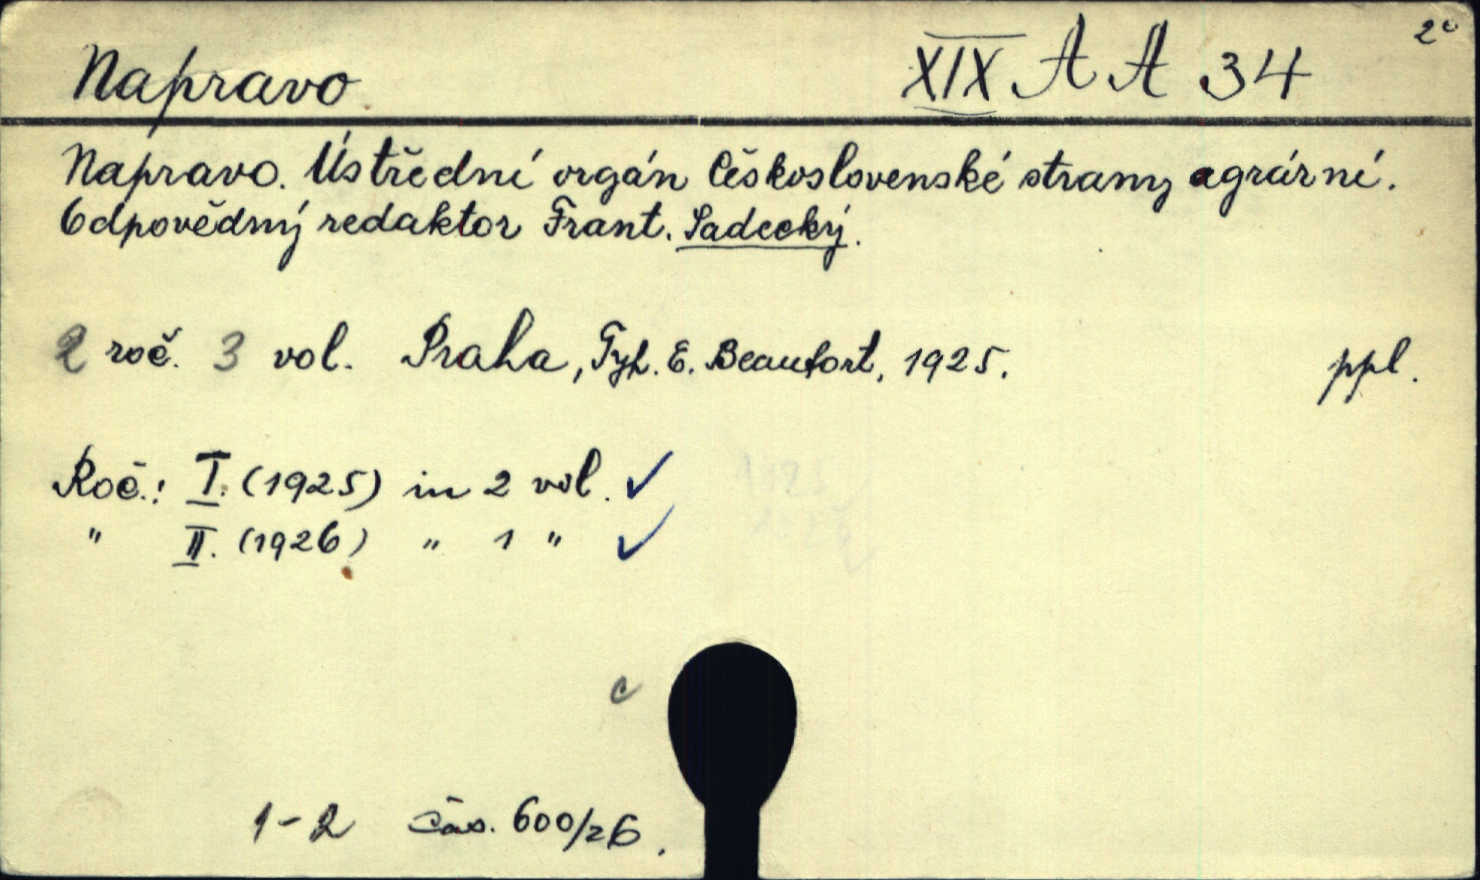 Napravo XIX A A 34 2°
Napravo. Ústřední orgán Československé strany agrární.
Odpovědný redaktor Frant. Sadecký.
2 roč. 3 vol. Praha, Typ. E. Beaufort, 1925. ppl.
Roč.: I. (1925) in 2 vol. ✓
" II. (1926) " 1 " ✓
c
1-2 čas. 600/26.